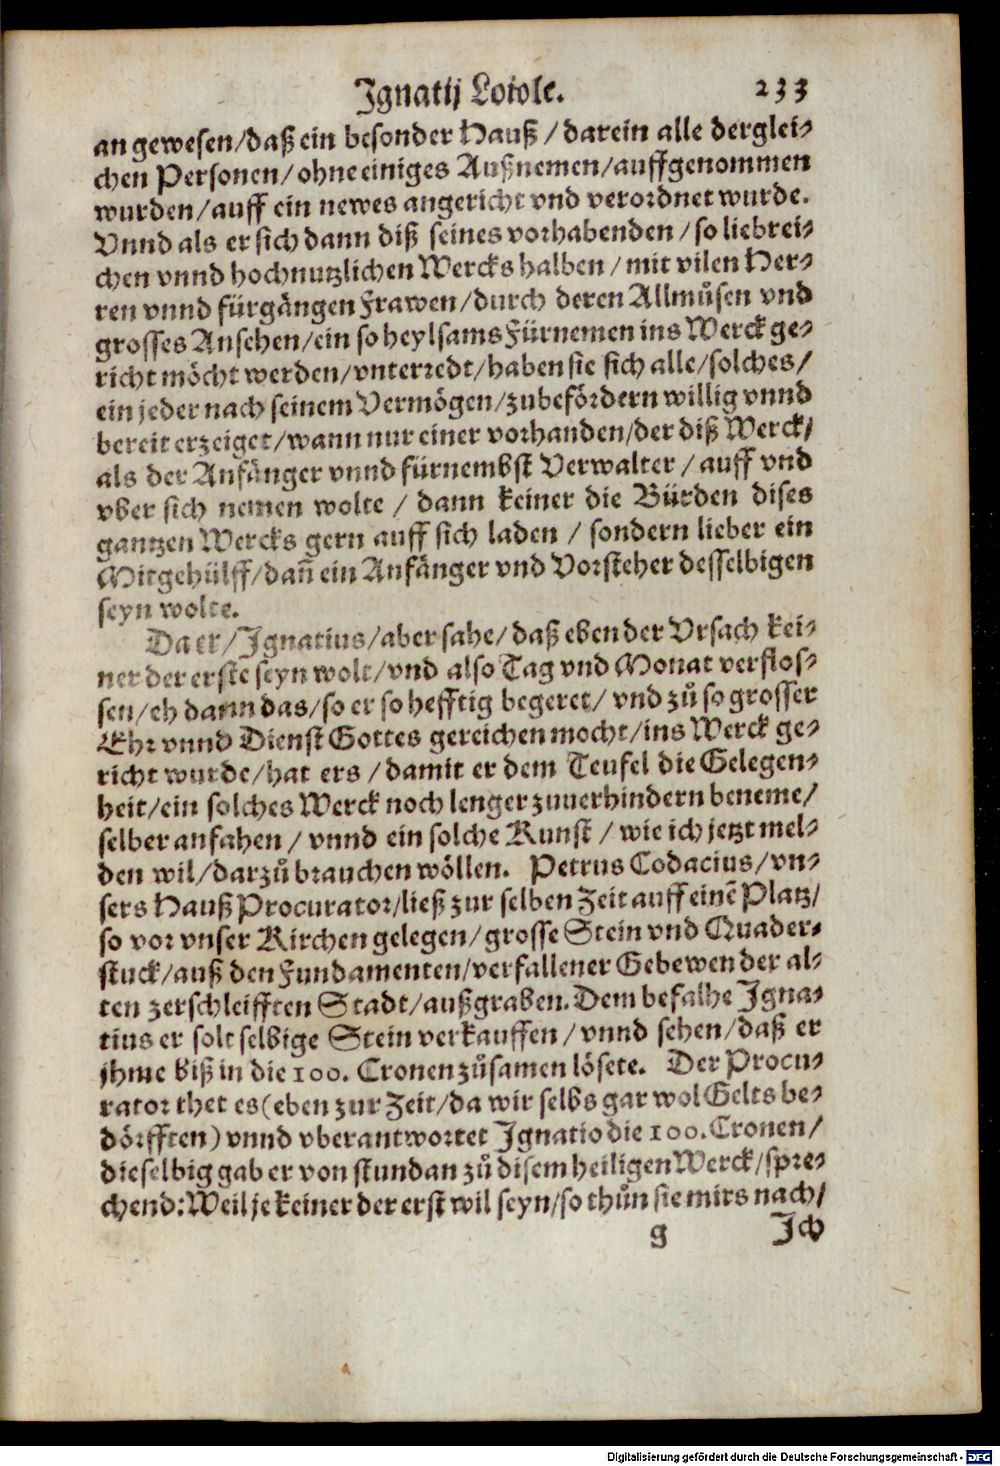 Ignatij Loiole. 233
an gewesen/daß ein besonder Hauß/darein alle derglei⸗
chen Personen/ohne einiges Außnemen/auffgenommen
wurden/auff ein newes angericht vnd verordnet wurde.
Vnnd als er sich dann diß seines vorhabenden/so liebrei⸗
chen vnnd hochnutzlichen Wercks halben/mit vilen Her⸗
ren vnnd fürgängen Frawen/durch deren Allmůsen vnd
grosses Ansehen/ein so heylsams Fürnemen ins Werck ge⸗
richt möcht werden/vnterredt/haben sie sich alle/solches/
ein jeder nach seinem Vermögen/zubefördern willig vnnd
bereit erzeiget/wann nur einer vorhanden/der diß Werck/
als der Anfänger vnnd fürnembst Verwalter/auff vnd
vber sich nemen wolte/dann keiner die Bürden dises
gantzen Wercks gern auff sich laden/sondern lieber ein
Mitgehülff/dañ ein Anfänger vnd Vorsteher desselbigen
seyn wolte.
Da er/Ignatius/aber sahe/daß eben der Vrsach kei⸗
ner der erste seyn wolt/vnd also Tag vnd Monat verflos⸗
sen/eh dann das/so er so hefftig begeret/vnd zů so grosser
Ehr vnnd Dienst Gottes gereichen mocht/ins Werck ge⸗
richt wurde/hat ers/damit er dem Teufel die Gelegen⸗
heit/ein solches Werck noch lenger zuuerhindern beneme/
selber anfahen/vnnd ein solche Kunst/wie ich jetzt mel⸗
den wil/darzů brauchen wöllen. Petrus Codacius/vn⸗
sers Hauß Procurator/ließ zur selben Zeit auff einē Platz/
so vor vnser Kirchen gelegen/grosse Stein vnd Quader⸗
stuck/auß den Fundamenten/verfallener Gebewen der al⸗
ten zerschleifften Stadt/außgraben. Dem befalhe Igna⸗
tius er solt selbige Stein verkauffen/vnnd sehen/daß er
jhme biß in die 100. Cronen zůsamen lösete. Der Procu⸗
rator thet es (eben zur Zeit/da wir selbs gar wol Gelts be⸗
dörfften) vnnd vberantwortet Ignatio die 100. Cronen/
dieselbig gab er von stundan zů disem heiligen Werck/spre⸗
chend: Weil je keiner der erst wil seyn/so thůn sie mirs nach/
g Ich
Digitalisierung gefördert durch die Deutsche Forschungsgemeinschaft - DFG